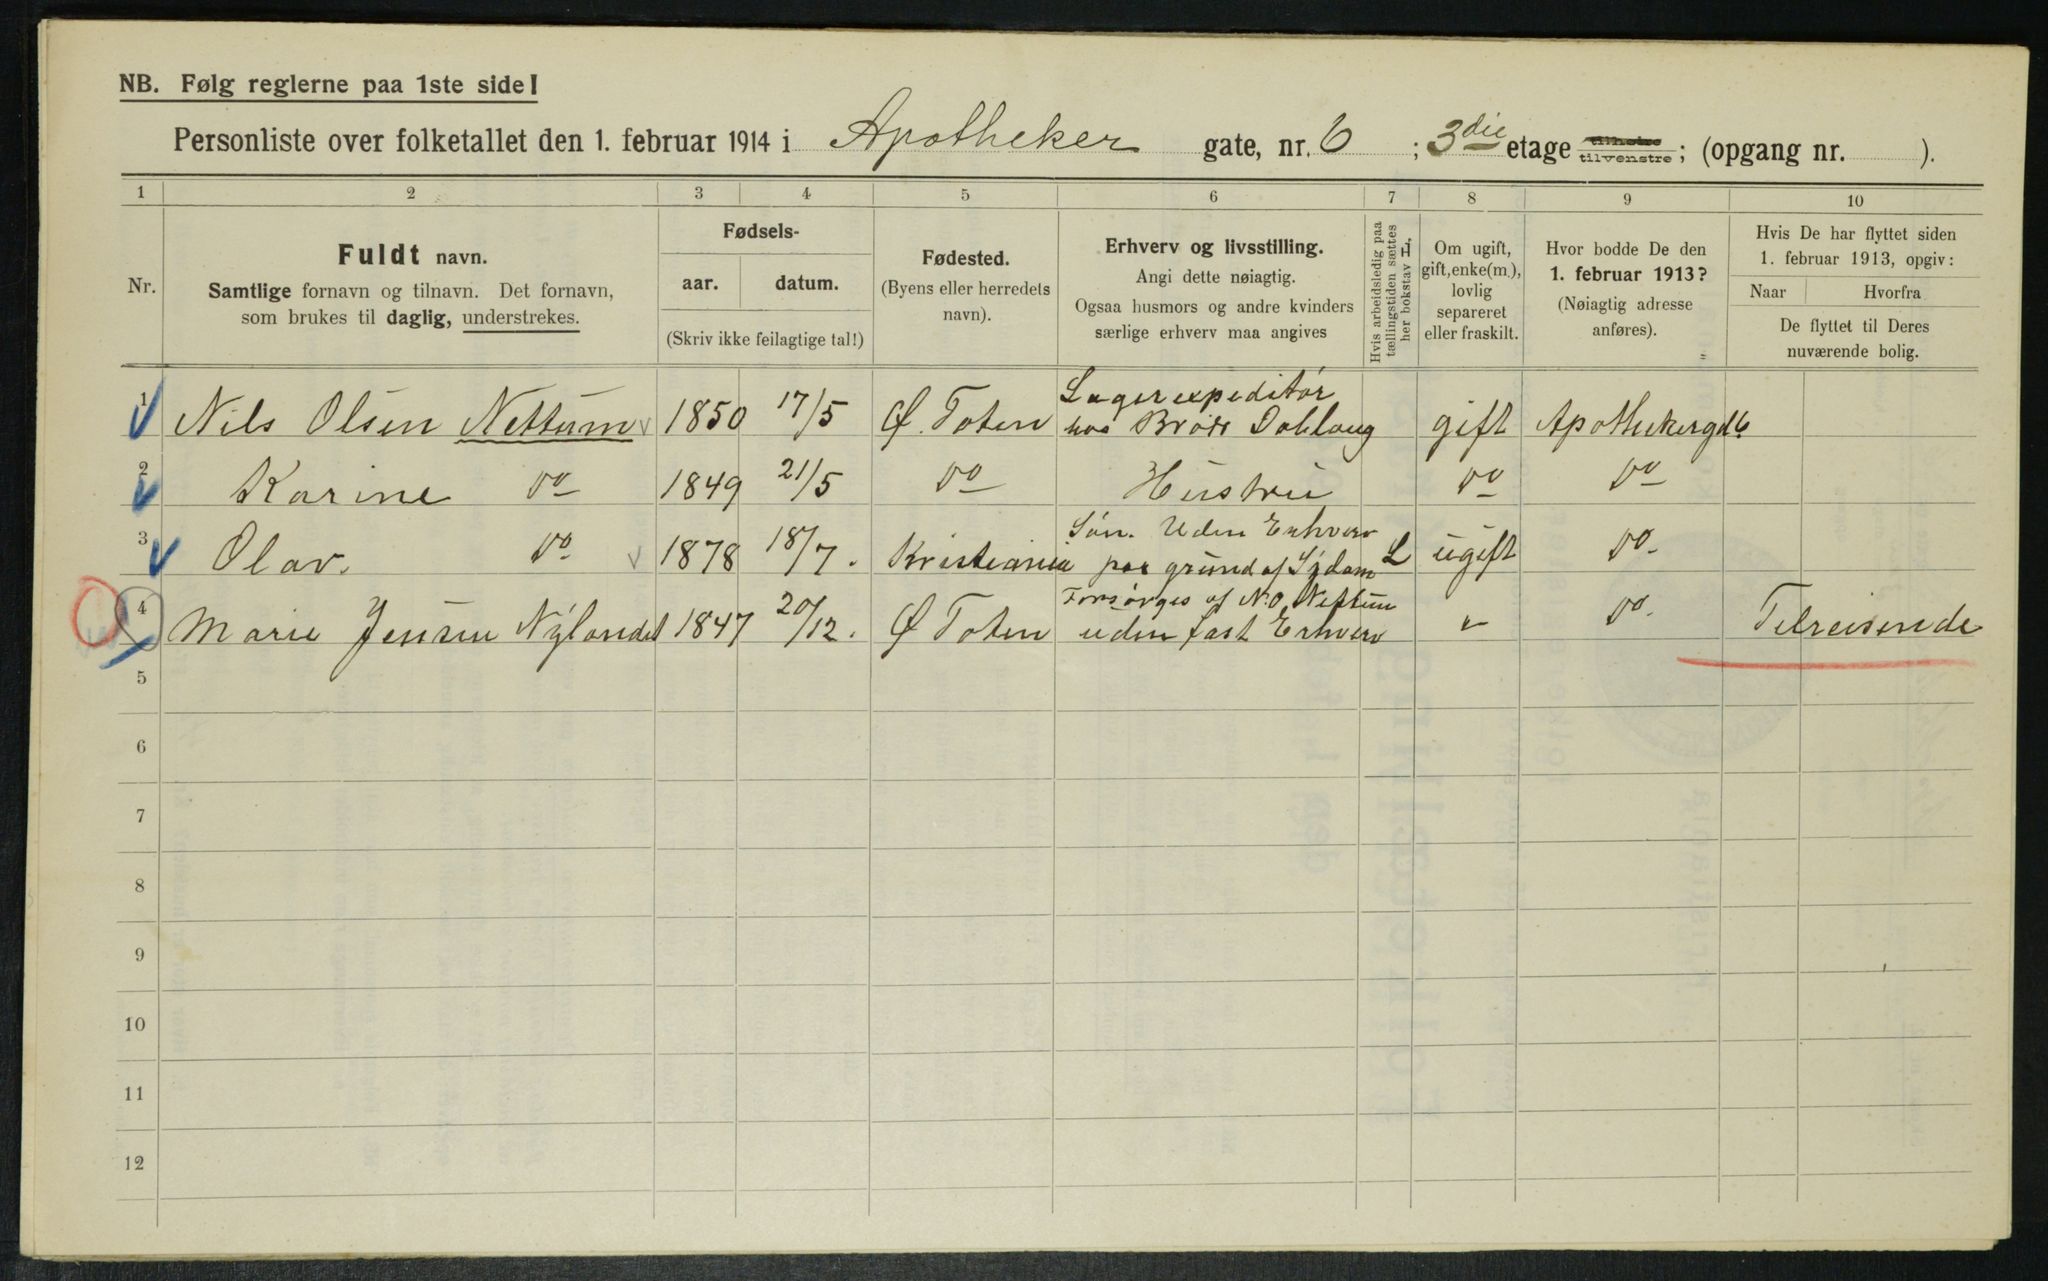 NB. Følg reglerne paa 1ste side!
Personliste over folketallet den 1. februar 1914 i Apotheker gate, nr. 6 ; 3die etage tilhøire tilvenstre; (opgang nr. ).
1 2 3 4 5 6 7 8 9 10
Nr.
Fuldt navn.
Samtlige fornavn og tilnavn. Det fornavn,
som brukes til daglig, understrekes.
Fødsels-
aar. datum.
(Skriv ikke feilagtige tal!)
Fødested.
(Byens eller herredets
navn).
Erhverv og livsstilling.
Angi dette nøiagtig.
Ogsaa husmors og andre kvinders
særlige erhverv maa angives
Hvis arbeidsledig paa
tællingstiden sættes
her bokstav L.
Om ugift,
gift, enke(m.),
lovlig
separeret
eller fraskilt.
Hvor bodde De den
1. februar 1913?
(Nøiagtig adresse
anføres).
Hvis De har flyttet siden
1. februar 1913, opgiv:
Naar Hvorfra
De flyttet til Deres
nuværende bolig.
1 Nils Olsen Nettum 1850 17/5 Ø. Toten Lagerexpeditør
hos Brødr Dobloug gift Apothekergd 6
2 Karine do 1849 21/5 do Hustru do do
3 Olav. do 1878 18/7. Kristiania Søn. Uden Erhverv
paa grund af Sygdom L ugift do.
4 Marie Jensen Nylandet 1847 20/12. Ø Toten Forsørges af N.O. Nettum
uden fast Erhverv " do. Tilreisende
5
6
7
8
9
10
11
12